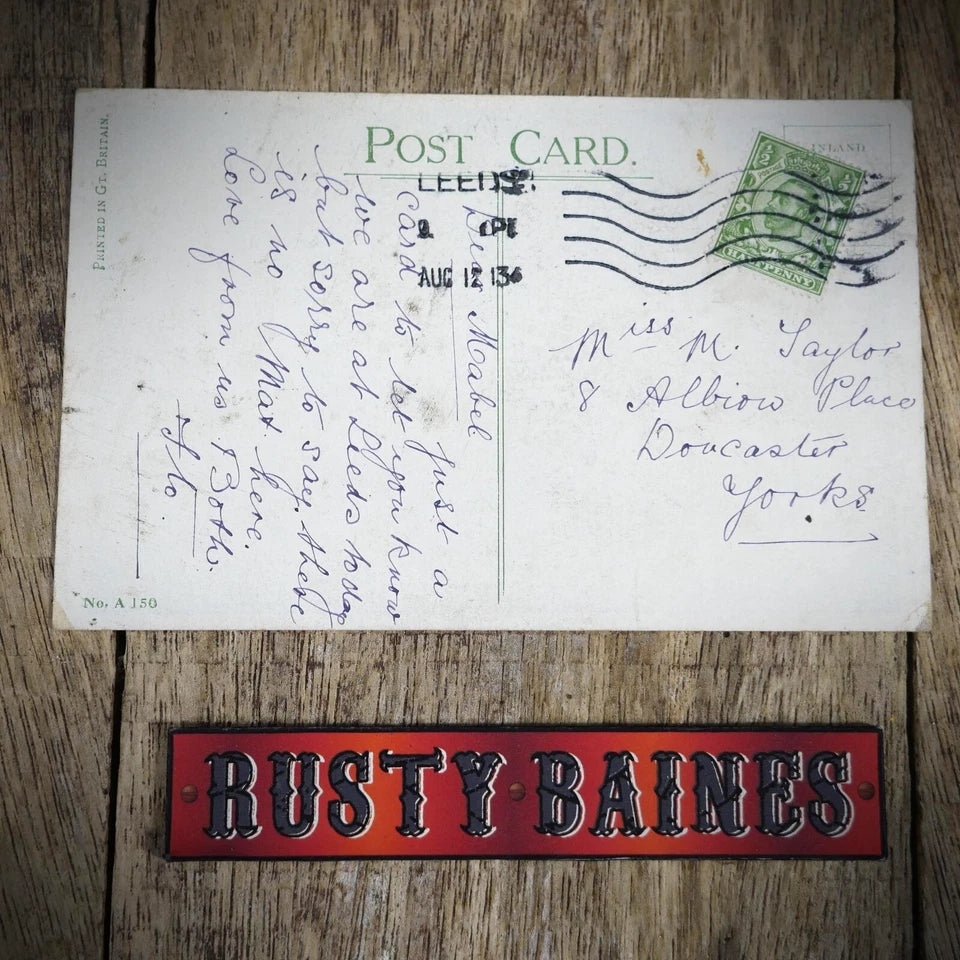 PRINTED IN GT. BRITAIN.
POST CARD.
INLAND
½
½
HALFPENNY
LEEDS
AUG 12 13
Dear Mabel
Just a
card to let you know
we are at Leeds today
but sorry to say there
is no Mar. here.
Love from us Both.
Flo.
Miss M. Taylor
8 Albion Place
Doncaster
Yorks
No. A 150
RUSTY BAINES